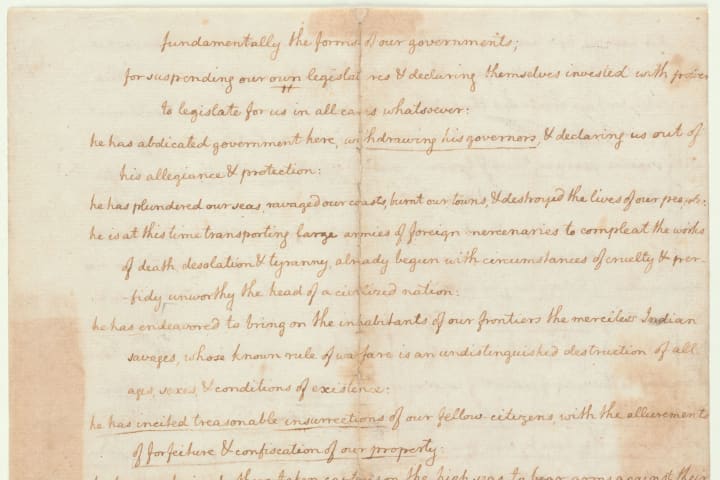 fundamentally the forms of our governments;
for suspending our own legislatures & declaring themselves invested with power
to legislate for us in all cases whatsoever:
he has abdicated government here, withdrawing his governors, & declaring us out of
his allegiance & protection:
he has plundered our seas, ravaged our coasts, burnt our towns, & destroyed the lives of our people:
he is at this time transporting large armies of foreign mercenaries to compleat the works
of death, desolation & tyranny, already begun with circumstances of cruelty & per-
-fidy unworthy the head of a civilized nation:
he has endeavored to bring on the inhabitants of our frontiers the merciless Indian
savages, whose known rule of warfare is an undistinguished destruction of all
ages, sexes, & conditions of existence:
he has incited treasonable insurrections of our fellow-citizens, with the allurements
of forfeiture & confiscation of our property:
taken captives on the high seas to bear arms against their